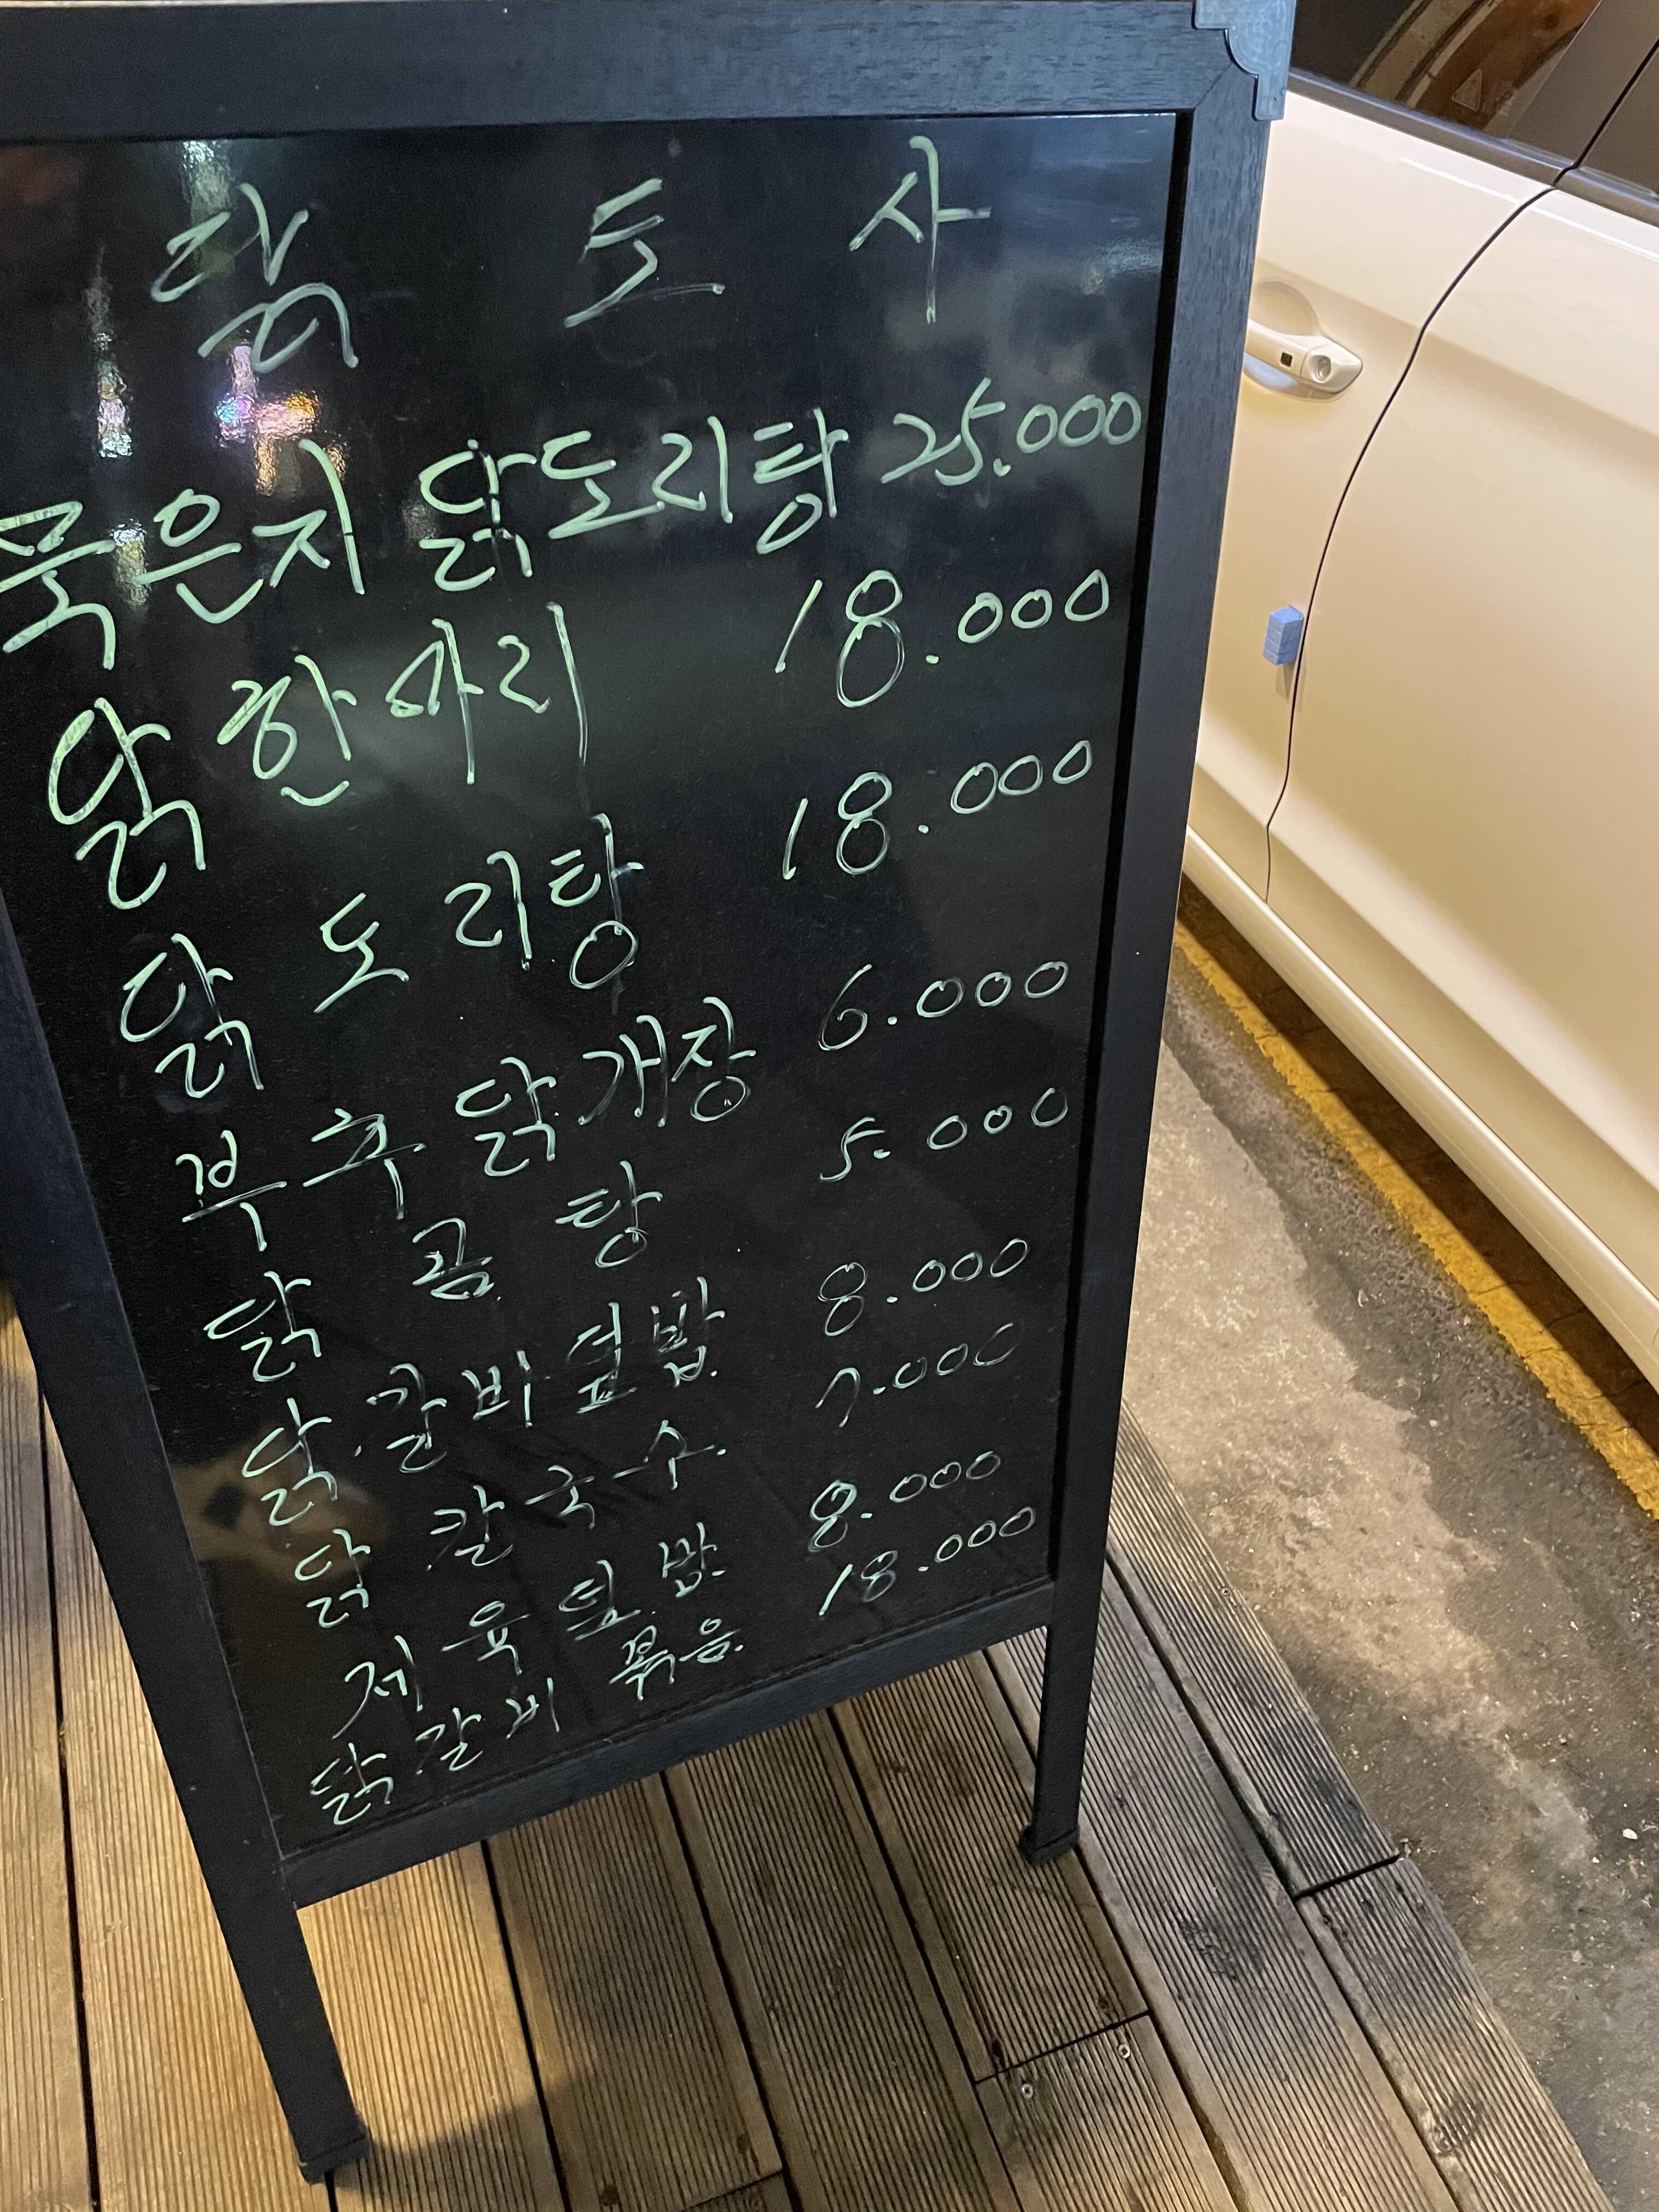 닭 도 사
묵은지 닭도리탕 25.000
닭 한마리 18.000
닭 도 리탕 18.000
부 추 닭개장 6.000
닭 곰 탕 5.000
닭.갈비덮밥 8.000
닭 칼국수. 7.000
제육덮밥 8.000
닭갈비 볶음. 18.000